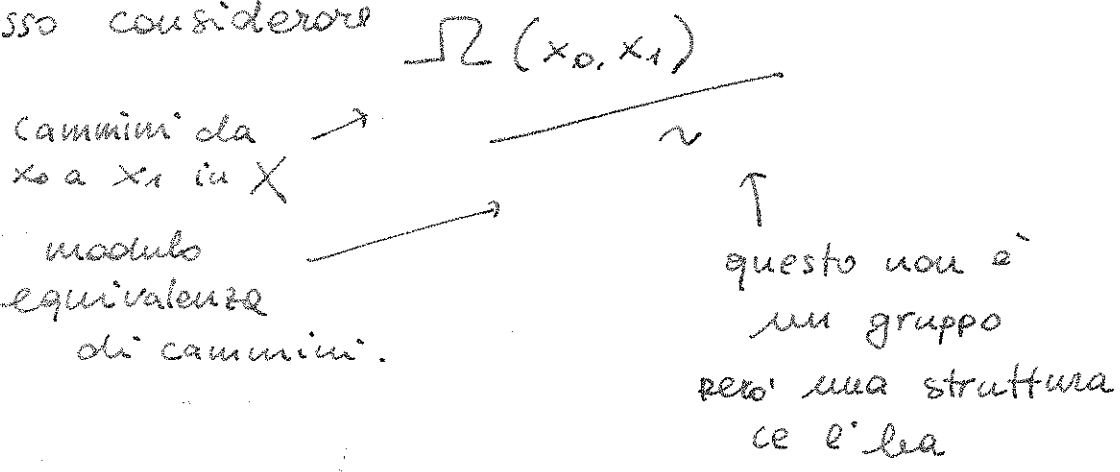 sso considerare
Ω (x₀, x₁)
~
cammini da
x₀ a x₁ in X
modulo
equivalenza
di cammini.
questo non è
un gruppo
però una struttura
ce l'ha